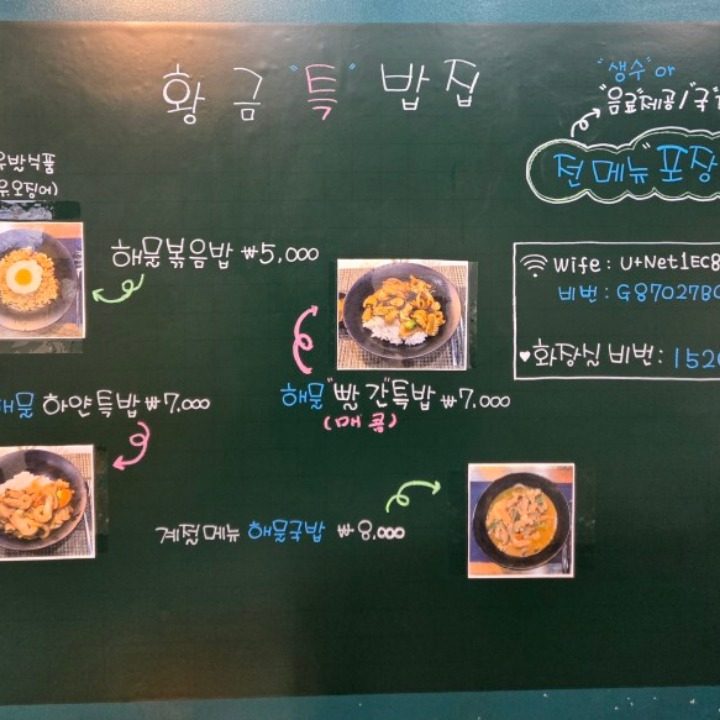 황금"특"밥집
"생수" or
"음료"제공/"국"
전메뉴"포장
반식품
오징어)
해물볶음밥 ₩5,000
Wife : U+Net1EC8
비번 : G87027B
♥화장실 비번 : 152
해물 하얀특밥 ₩7,000
해물"빨간"특밥 ₩7,000
(매콤)
계절메뉴 해물국밥 ₩8,000